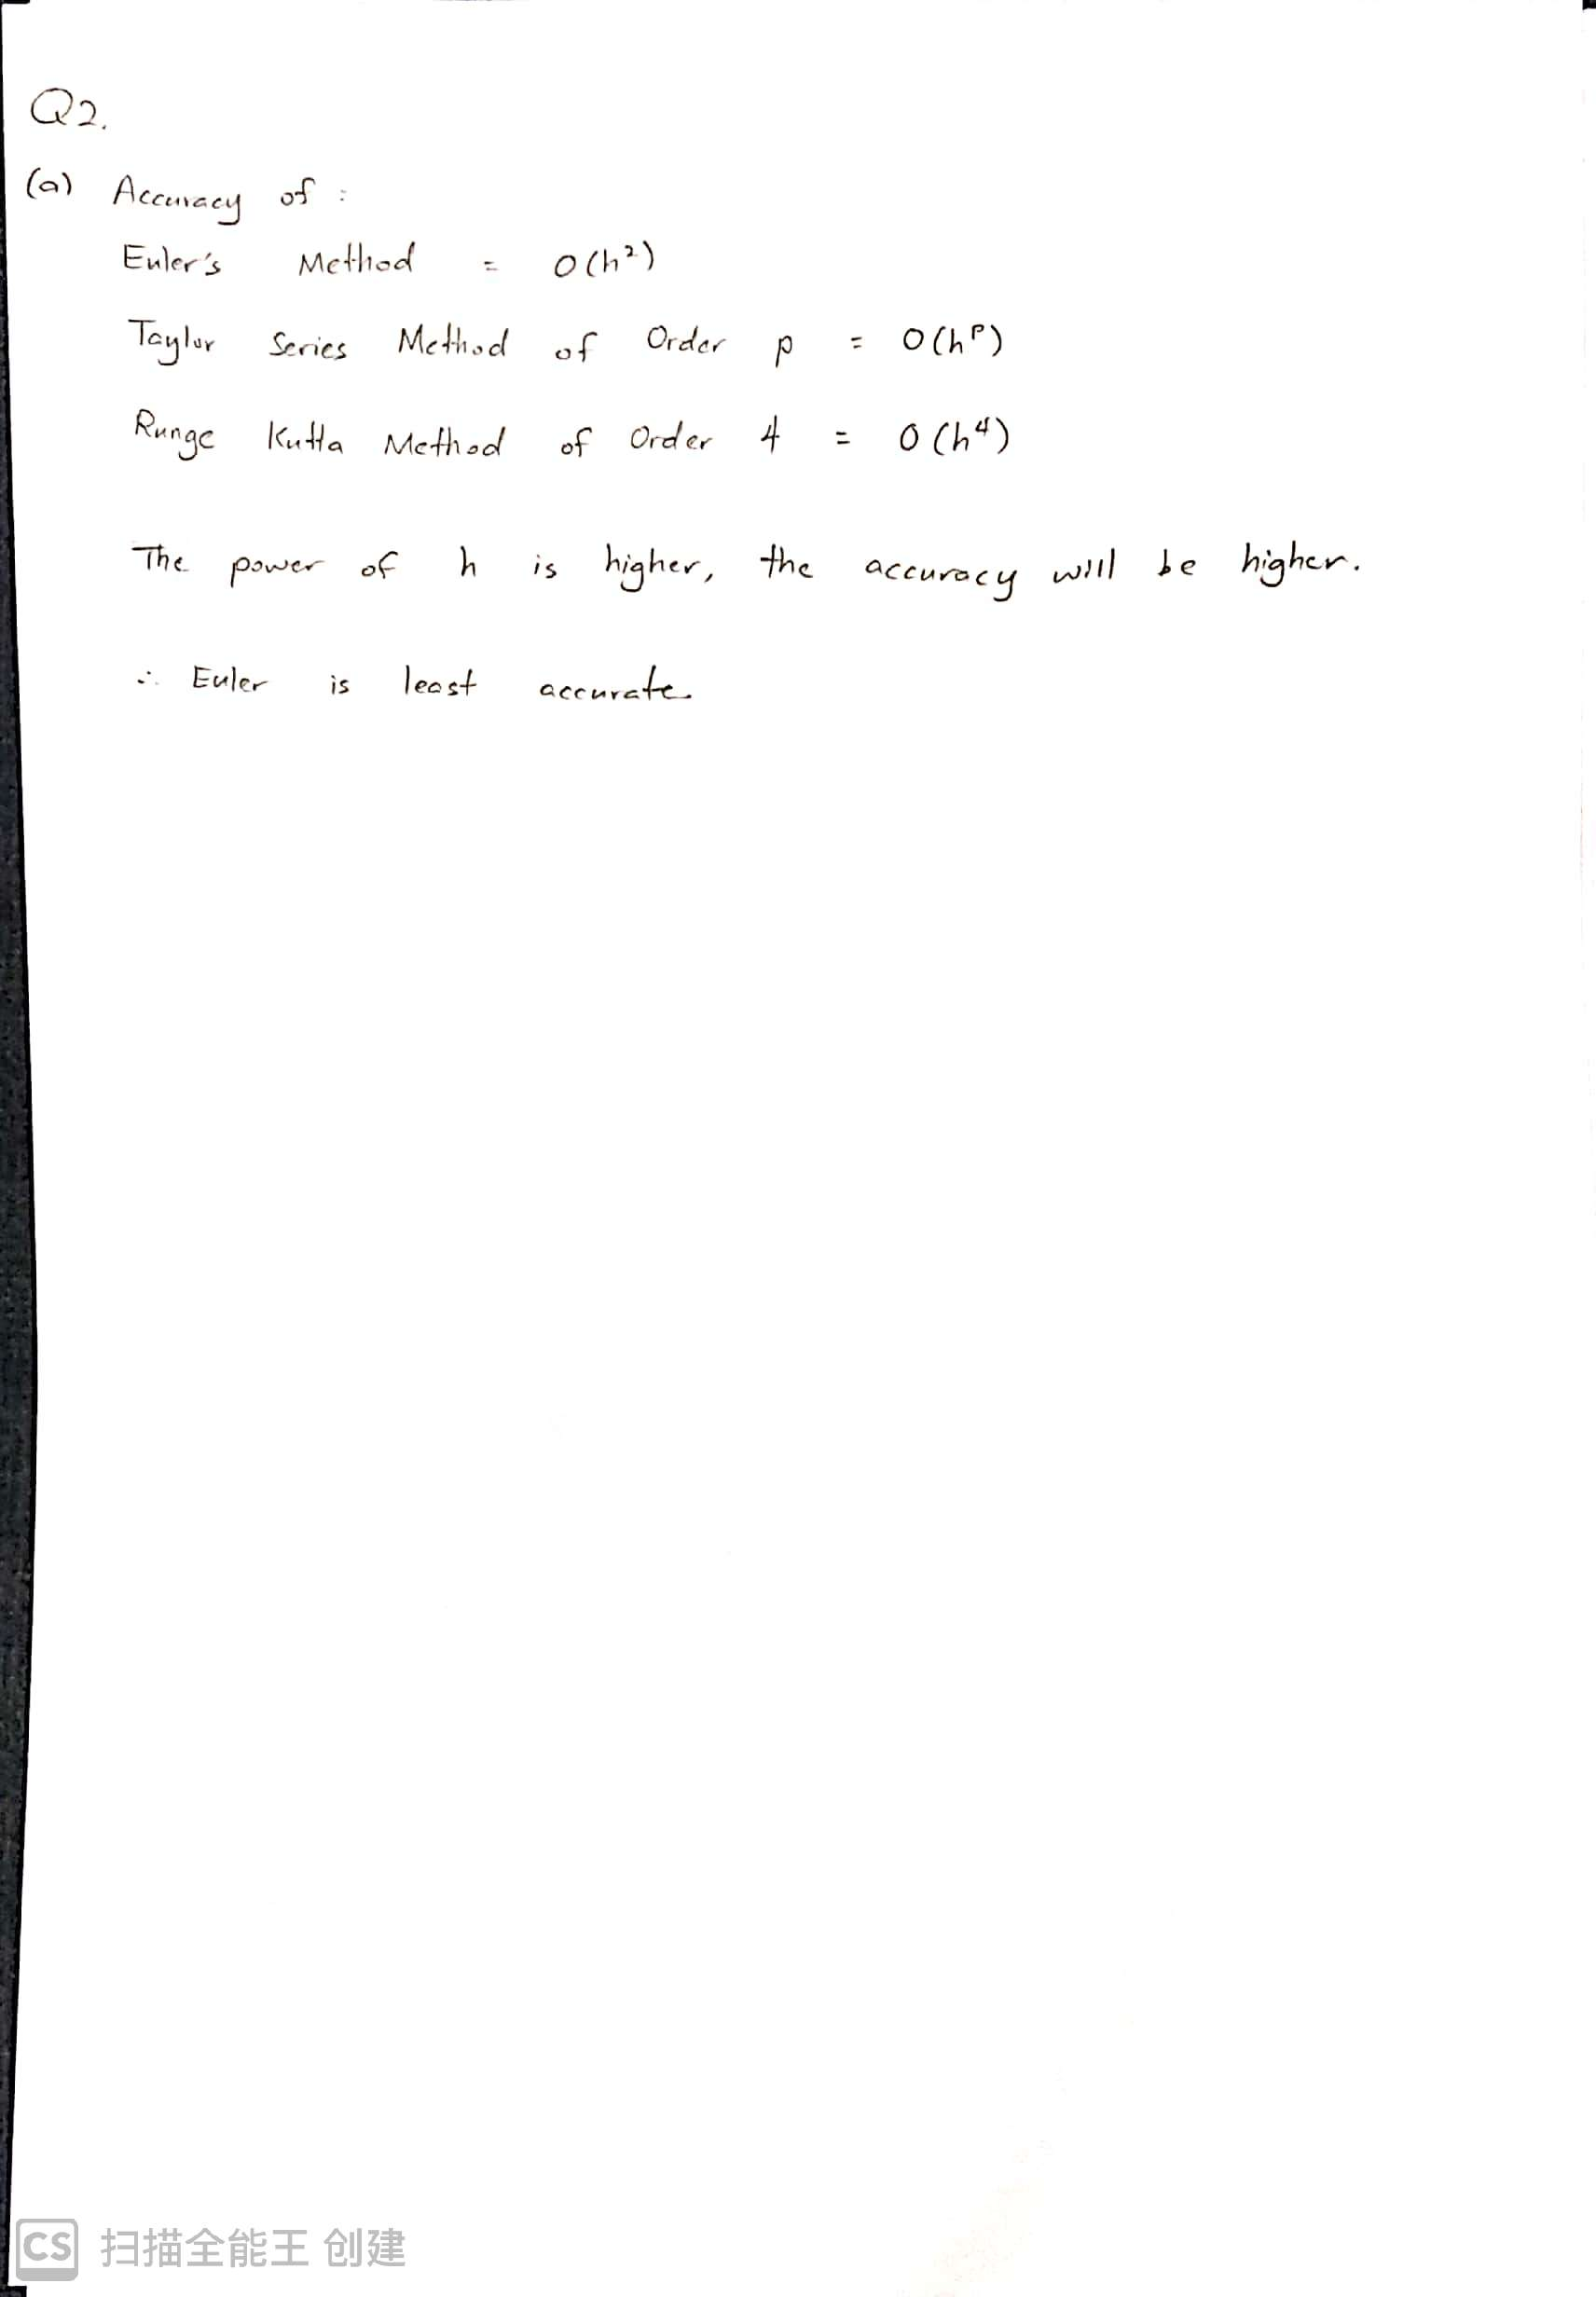 Q2.
(a) Accuracy of :
Euler's Method = O(h²)
Taylor Series Method of Order p = O(hᵖ)
Runge Kutta Method of Order 4 = O(h⁴)
The power of h is higher, the accuracy will be higher.
∴ Euler is least accurate.
CS 扫描全能王 创建